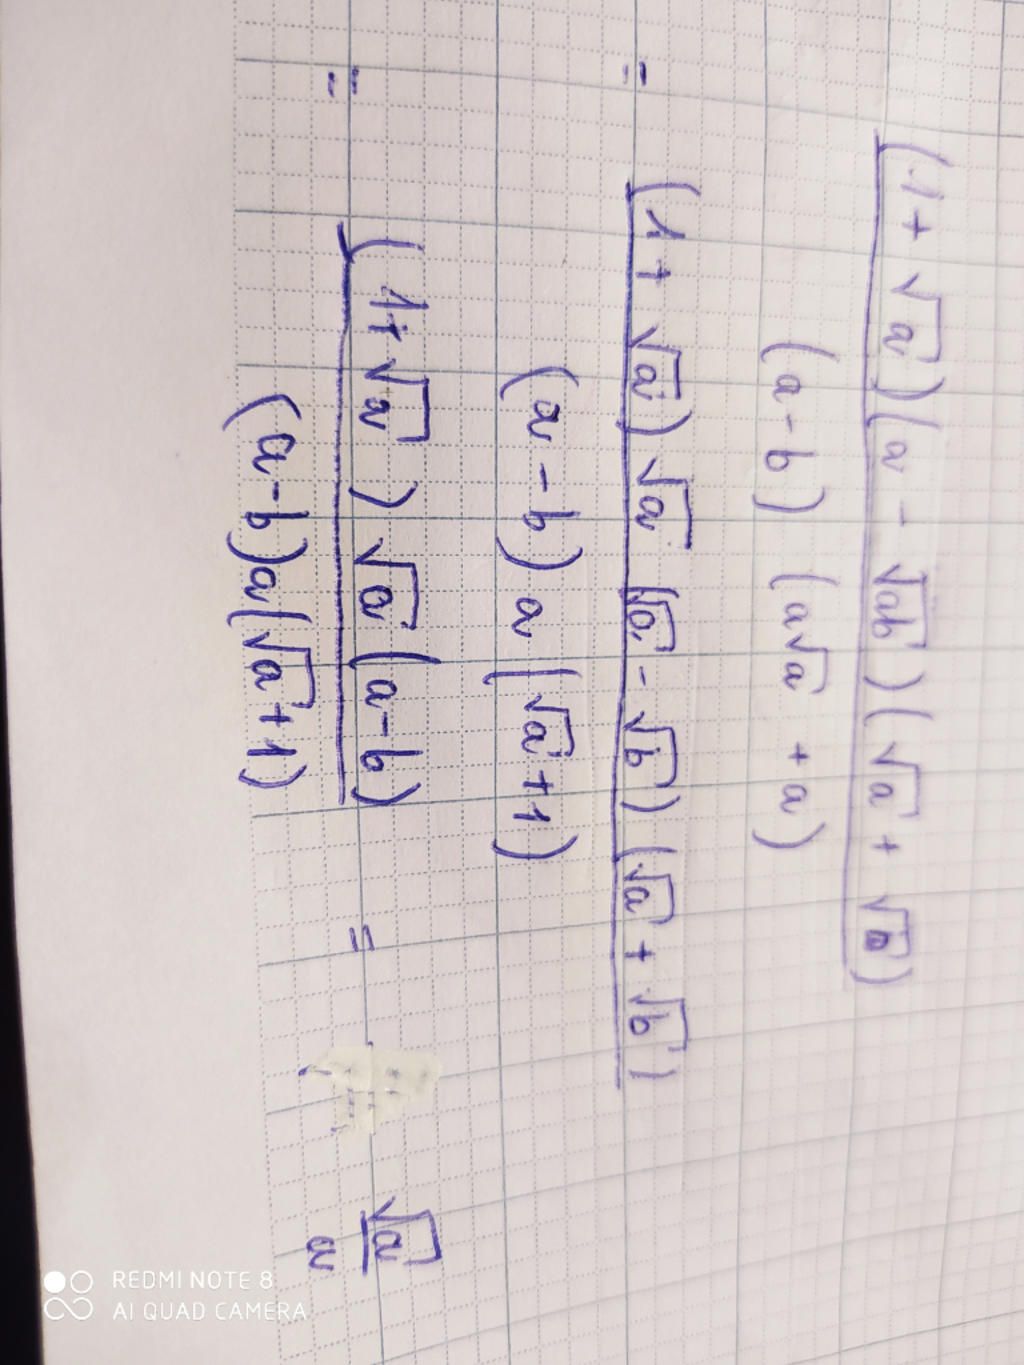 (1 + √a)(a - √ab)(√a + √b)
(a - b) (a√a + a)
= (1 + √a) √a √a - √b) (√a + √b)
(a - b) a (√a + 1)
= (1 + √a) √a (a - b) = √a
(a - b) a (√a + 1) a
REDMI NOTE 8
AI QUAD CAMERA